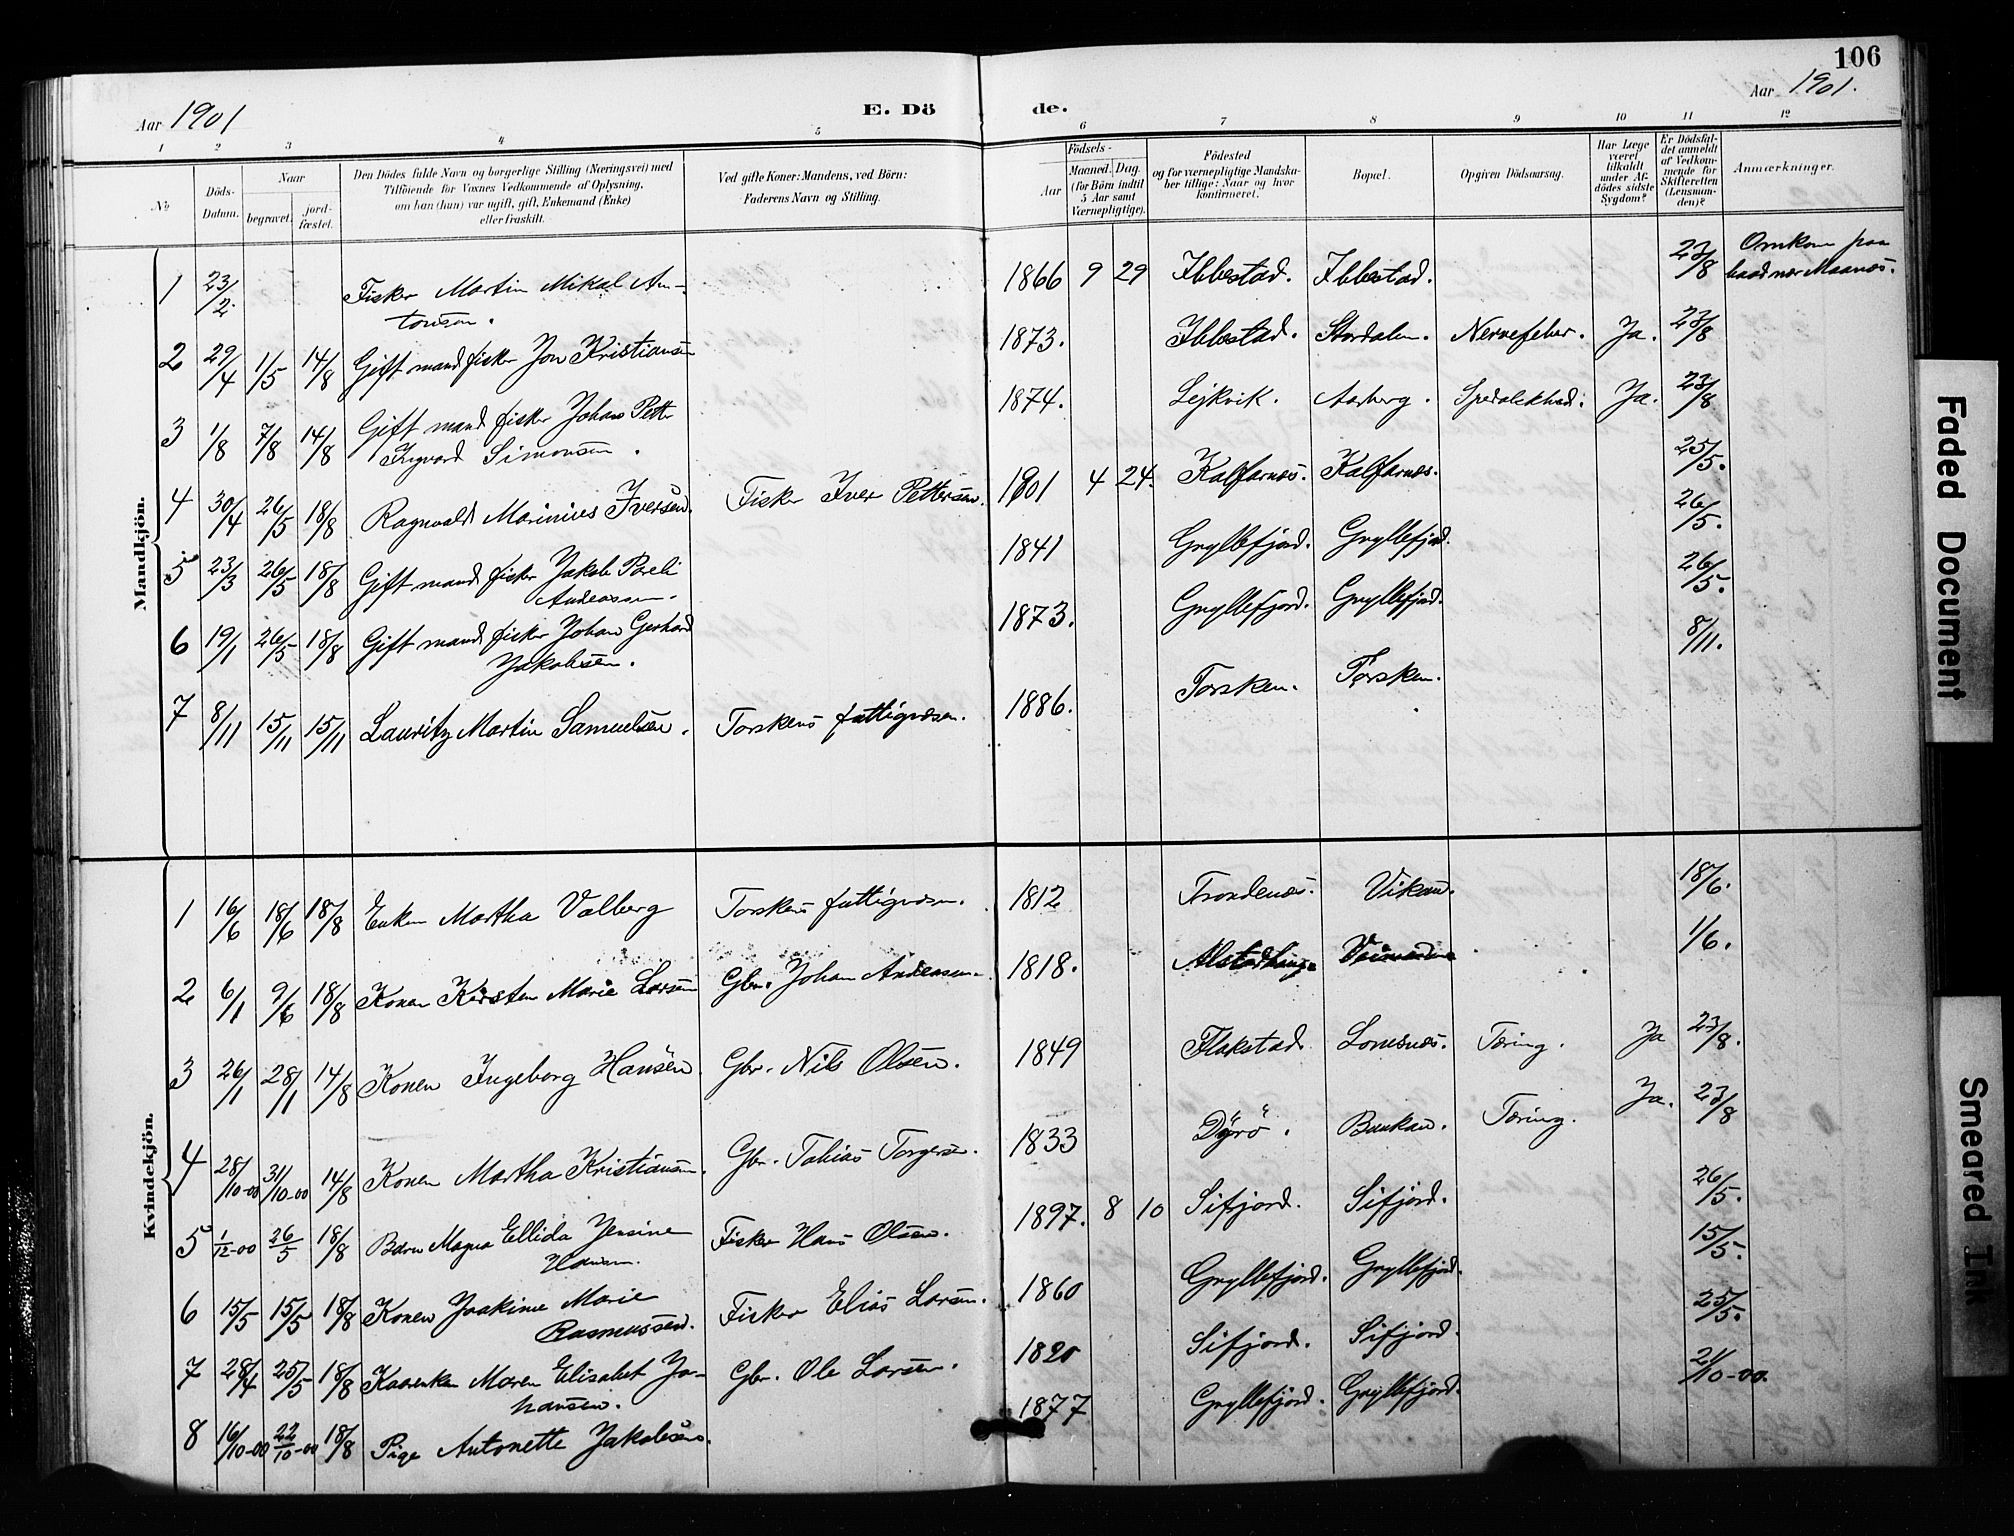 106
Aar 1901
E. Döde.
Aar 1901.
1 2 3 4 5 6 7 8 9 10 11 12
No
Döds-Datum.
Naar
begravet.
jord-fæstet.
Den Dödes fulde Navn og borgerlige Stilling (Næringsvei) med
Tilföiende for Voxnes Vedkommende af Oplysning,
om han (hun) var ugift, gift, Enkemand (Enke)
eller fraskilt.
Ved gifte Koner: Mandens, ved Börn:
Faderens Navn og Stilling.
Födsels-
Aar
Maaned. Dag.
(for Börn indtil
5 Aar samt
Værnepligtige).
Födested
og for værnepligtige Mandska-
ber tillige: Naar og hvor
konfirmeret.
Bopæl.
Opgiven Dödsaarsag.
Har Læge
været
tilkaldt
under Af-
dödes sidste
Sygdom?
Er Dödsfal-
det anmeldt
af Vedkom-
mende for
Skifteretten
(Lensman-
den)?
Anmærkninger.
Mandkjön.
1 23/2. Fisker Martin Mikal An-
tonsen. 1866 9 29 Ibbestad. Ibbestad. 23/8 Omkom paa
baad nær Maanes.
2 29/4 1/5 14/8 Gift mand fisker Jon Kristiansen 1873. Ibbestad. Stordalen. Nervefeber. Ja. 23/8
3 1/8 7/8 14/8 Gift mand fisker Johan Petter
Ingvard Simonsen. 1874. Lejkvik. Aarberg. Spedalskhed. Ja. 23/8
4 30/4 26/5 18/8 Ragnvald Marinius Iversen. Fisker Iver Pettersen. 1901 4 24. Kalfarnes. Kalfarnes. 25/5.
5 23/3 26/5 18/8 Gift mand fisker Jakob Pareli
Andreassen. 1841 Gryllefjord. Gryllefjord. 26/5.
6 19/1 26/5 18/8 Gift mand fisker Johan Gerhard
Jakobsen. 1873. Gryllefjord. Gryllefjord. 26/5.
7 8/11 15/11 15/11 Lauritz Martin Samuelsen. Torskens fattigvæsen. 1886. Torsken. Torsken. 8/11.
Kvindekjön.
1 16/6 18/6 18/8 Enken Martha Valberg Torskens fattigvæsen. 1812 Trondenæs. Vikan. 18/6.
2 6/1 9/6 18/8 Konen Kirsten Marie Larsen Gbr. Johan Andreassen. 1818. Alstadhaug 1/6.
3 26/1 28/1 14/8 Konen Ingeborg Hansen Gbr. Nils Olsen. 1849 Flakstad. Lonesnæs. Tæring. Ja 23/8.
4 28/10-00 31/10-00 14/8 Konen Martha Kristiansen. Gbr. Tobias Torgersen. 1833 Dyrö. Bunkan. Tæring. Ja. 23/8
5 1/12-00 26/5 18/8 Barn Magna Ellida Jensine
Hansen. Fisker Hans Olsen. 1897. 8 10 Sifjord. Sifjord. 26/5.
6 15/5 15/5 18/8 Konen Joakime Marie
Rasmussen. Fisker Elias Larsen. 1860 Gryllefjord. Gryllefjord. 15/5.
7 28/4 25/5 18/8 Kaarenke Maren Elisabet Jo-
hansen. Gbr. Ole Larsen. 1820 Sifjord. Sifjord. 25/5.
8 16/10-00 22/10-00 18/8 Pige Antonette Jakobsen. 1877 Gryllefjord. Gryllefjord. 21/10-00.
Faded Document
Smeared Ink